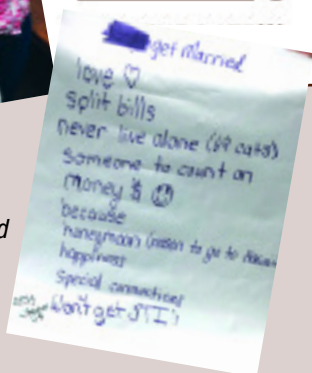 get Married
love ♡
split bills
never live alone (69 cats)
someone to count on
money $ ☺
because
honeymoon (reason to go to Hawaii
happiness
special connections
Won't get STI's
d